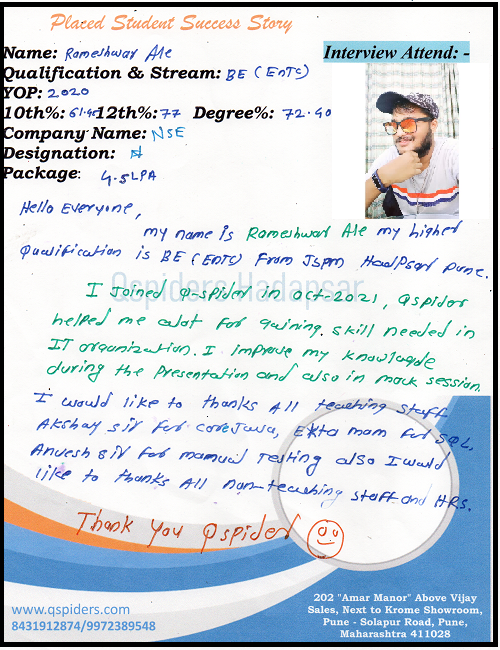 Placed Student Success Story
Name: Rameshwar Ale
Interview Attend: -
Qualification & Stream: BE (EnTC)
YOP: 2020
10th%: 61.45 12th%: 77 Degree%: 72.40
Company Name: NSE
Designation:
Package: 4.5LPA
Hello Everyone,
my name is Rameshwar Ale my higher
Qualification is BE (EnTC) From Jspm Hadpsar Pune.
Qspiders Hadapsar
I Joined Q-spider in oct-2021, Qspider
helped me alot for gaining skill needed in
IT organization. I improve my knowlegde
during the presentation and also in mock session.
I would like to thanks All teaching staff
Akshay sir for coreJava, Ekta mam for SQL,
Anvesh sir for manual Testing also I would
like to thanks All non-teaching staff and HRs.
Thank You Qspider
202 "Amar Manor" Above Vijay
Sales, Next to Krome Showroom,
Pune - Solapur Road, Pune,
Maharashtra 411028
www.qspiders.com
8431912874/9972389548